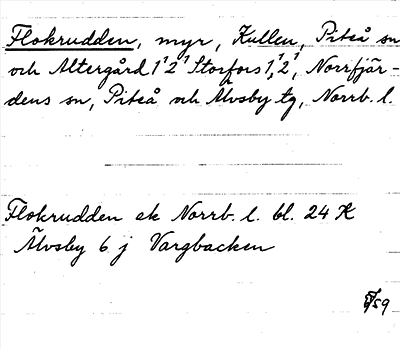 Flokrudden, myr, Kullen, Piteå sn
och Altergård 1¹2¹ Storfors 1¹, 2¹, Norrfjär-
dens sn, Piteå och Älvsby tg, Norrb. l.
Flokrudden ek Norrb. l. bl. 24 K
Älvsby 6 j Vargbacken
/59